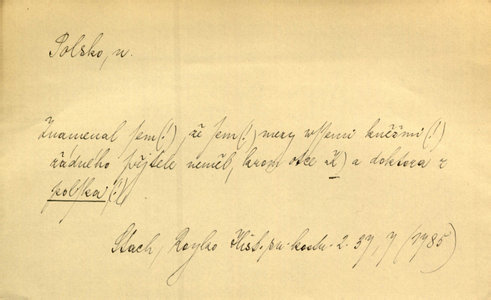 Polsko, n.
Znamenal sem(!), že sem(!) mezy wssemi knězmi(!)
žádného přjtele neměl, krom otce K) a doktora z
polska(!)
Stach, Royko Hist. 2. 37, 7 (1785)